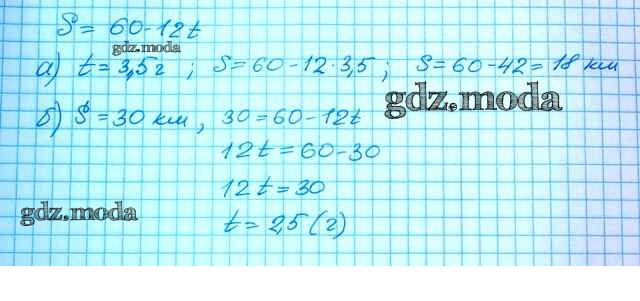 S = 60-12t
gdz.moda
а) t = 3,5 г ; S = 60-12·3,5 ; S = 60-42 = 18 км
gdz.moda
б) S = 30 км, 30 = 60-12t
12t = 60-30
12t = 30
gdz.moda
t = 2,5 (г)